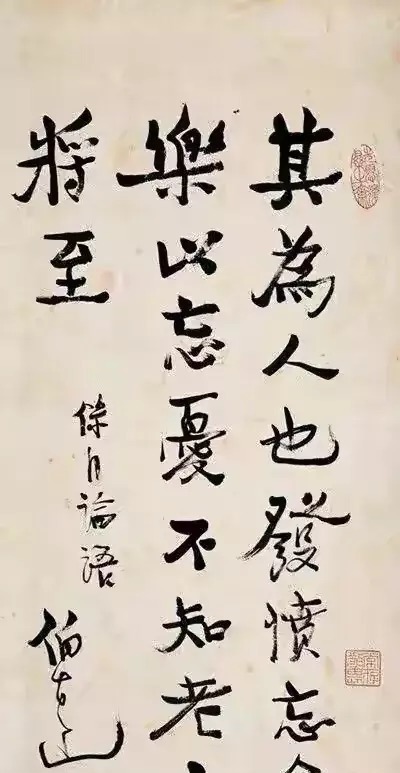 其為人也發憤忘
樂以忘憂不知老
將至
自論語
伯